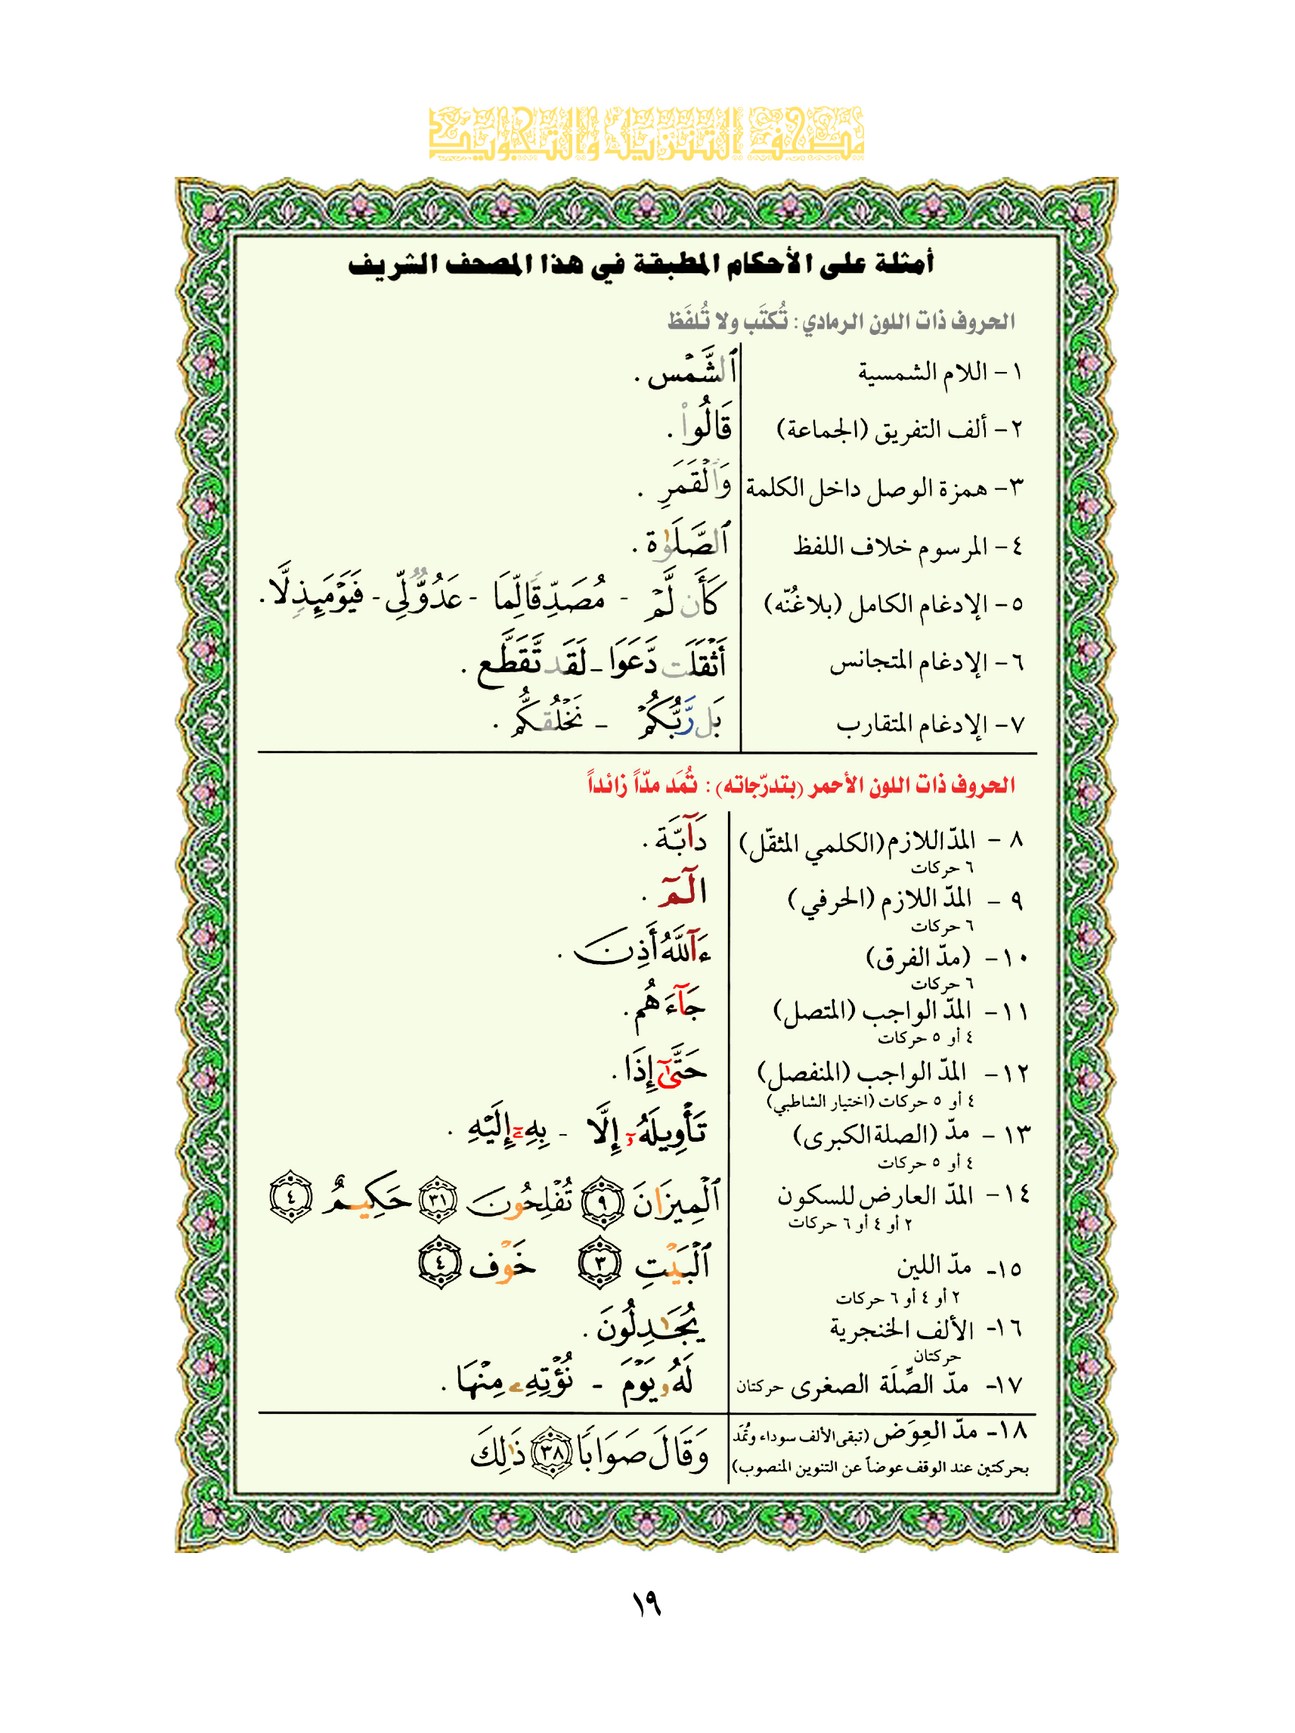 أمثلة على الأحكام المطبقة في هذا المصحف الشريف
الحروف ذات اللون الرمادي : تُكتَب ولا تُلفَظ
١- اللام الشمسية ٱلشَّمْس .
٢- ألف التفريق (الجماعة) قَالُواْ .
٣- همزة الوصل داخل الكلمة وَٱلْقَمَرِ .
٤- المرسوم خلاف اللفظ ٱلصَّلَوٰة .
٥- الإدغام الكامل (بلاغُنّه) كَأَن لَّمْ - مُصَدِّقًا لِّمَا - عَدُوٌّ لِّى - فَيَوْمَئِذٍ لَّا .
٦- الإدغام المتجانس أَثْقَلَت دَّعَوَا - لَقَد تَّقَطَّع .
٧- الإدغام المتقارب بَل رَّبُّكُمْ - نَخْلُقكُّم .
الحروف ذات اللون الأحمر (بتدرّجاته) : تُمَد مدّاً زائداً
٨- المدّ اللازم (الكلمي المثقّل) دَآبَّة .
٦ حركات
٩- المدّ اللازم (الحرفي) الٓمٓ .
٦ حركات
١٠- (مدّ الفرق) ءَآللَّهُ أَذِنَ .
٦ حركات
١١- المدّ الواجب (المتصل) جَآءَهُم .
٤ أو ٥ حركات
١٢- المدّ الواجب (المنفصل) حَتَّىٰٓ إِذَا .
٤ أو ٥ حركات (اختيار الشاطبي)
١٣- مدّ (الصلة الكبرى) تَأْوِيلَهُۥٓ إِلَّا - بِهِۦٓ إِلَيْهِ .
٤ أو ٥ حركات
١٤- المدّ العارض للسكون ٱلْمِيزَانَ ٩ تُفْلِحُونَ ٣١ حَكِيمٌ ٤
٢ أو ٤ أو ٦ حركات
١٥- مدّ اللين ٱلْبَيْتِ ٣ خَوْف ٤
٢ أو ٤ أو ٦ حركات
١٦- الألف الخنجرية يُجَٰدِلُونَ .
حركتان
١٧- مدّ الصِّلَة الصغرى حركتان لَهُۥ يَوْمَ - نُؤْتِهِۦ مِنْهَا .
١٨- مدّ العِوَض (تبقى الألف سوداء وتُمَد وَقَالَ صَوَابًا ٣٨ ذَٰلِكَ
بحركتين عند الوقف عوضاً عن التنوين المنصوب)
١٩